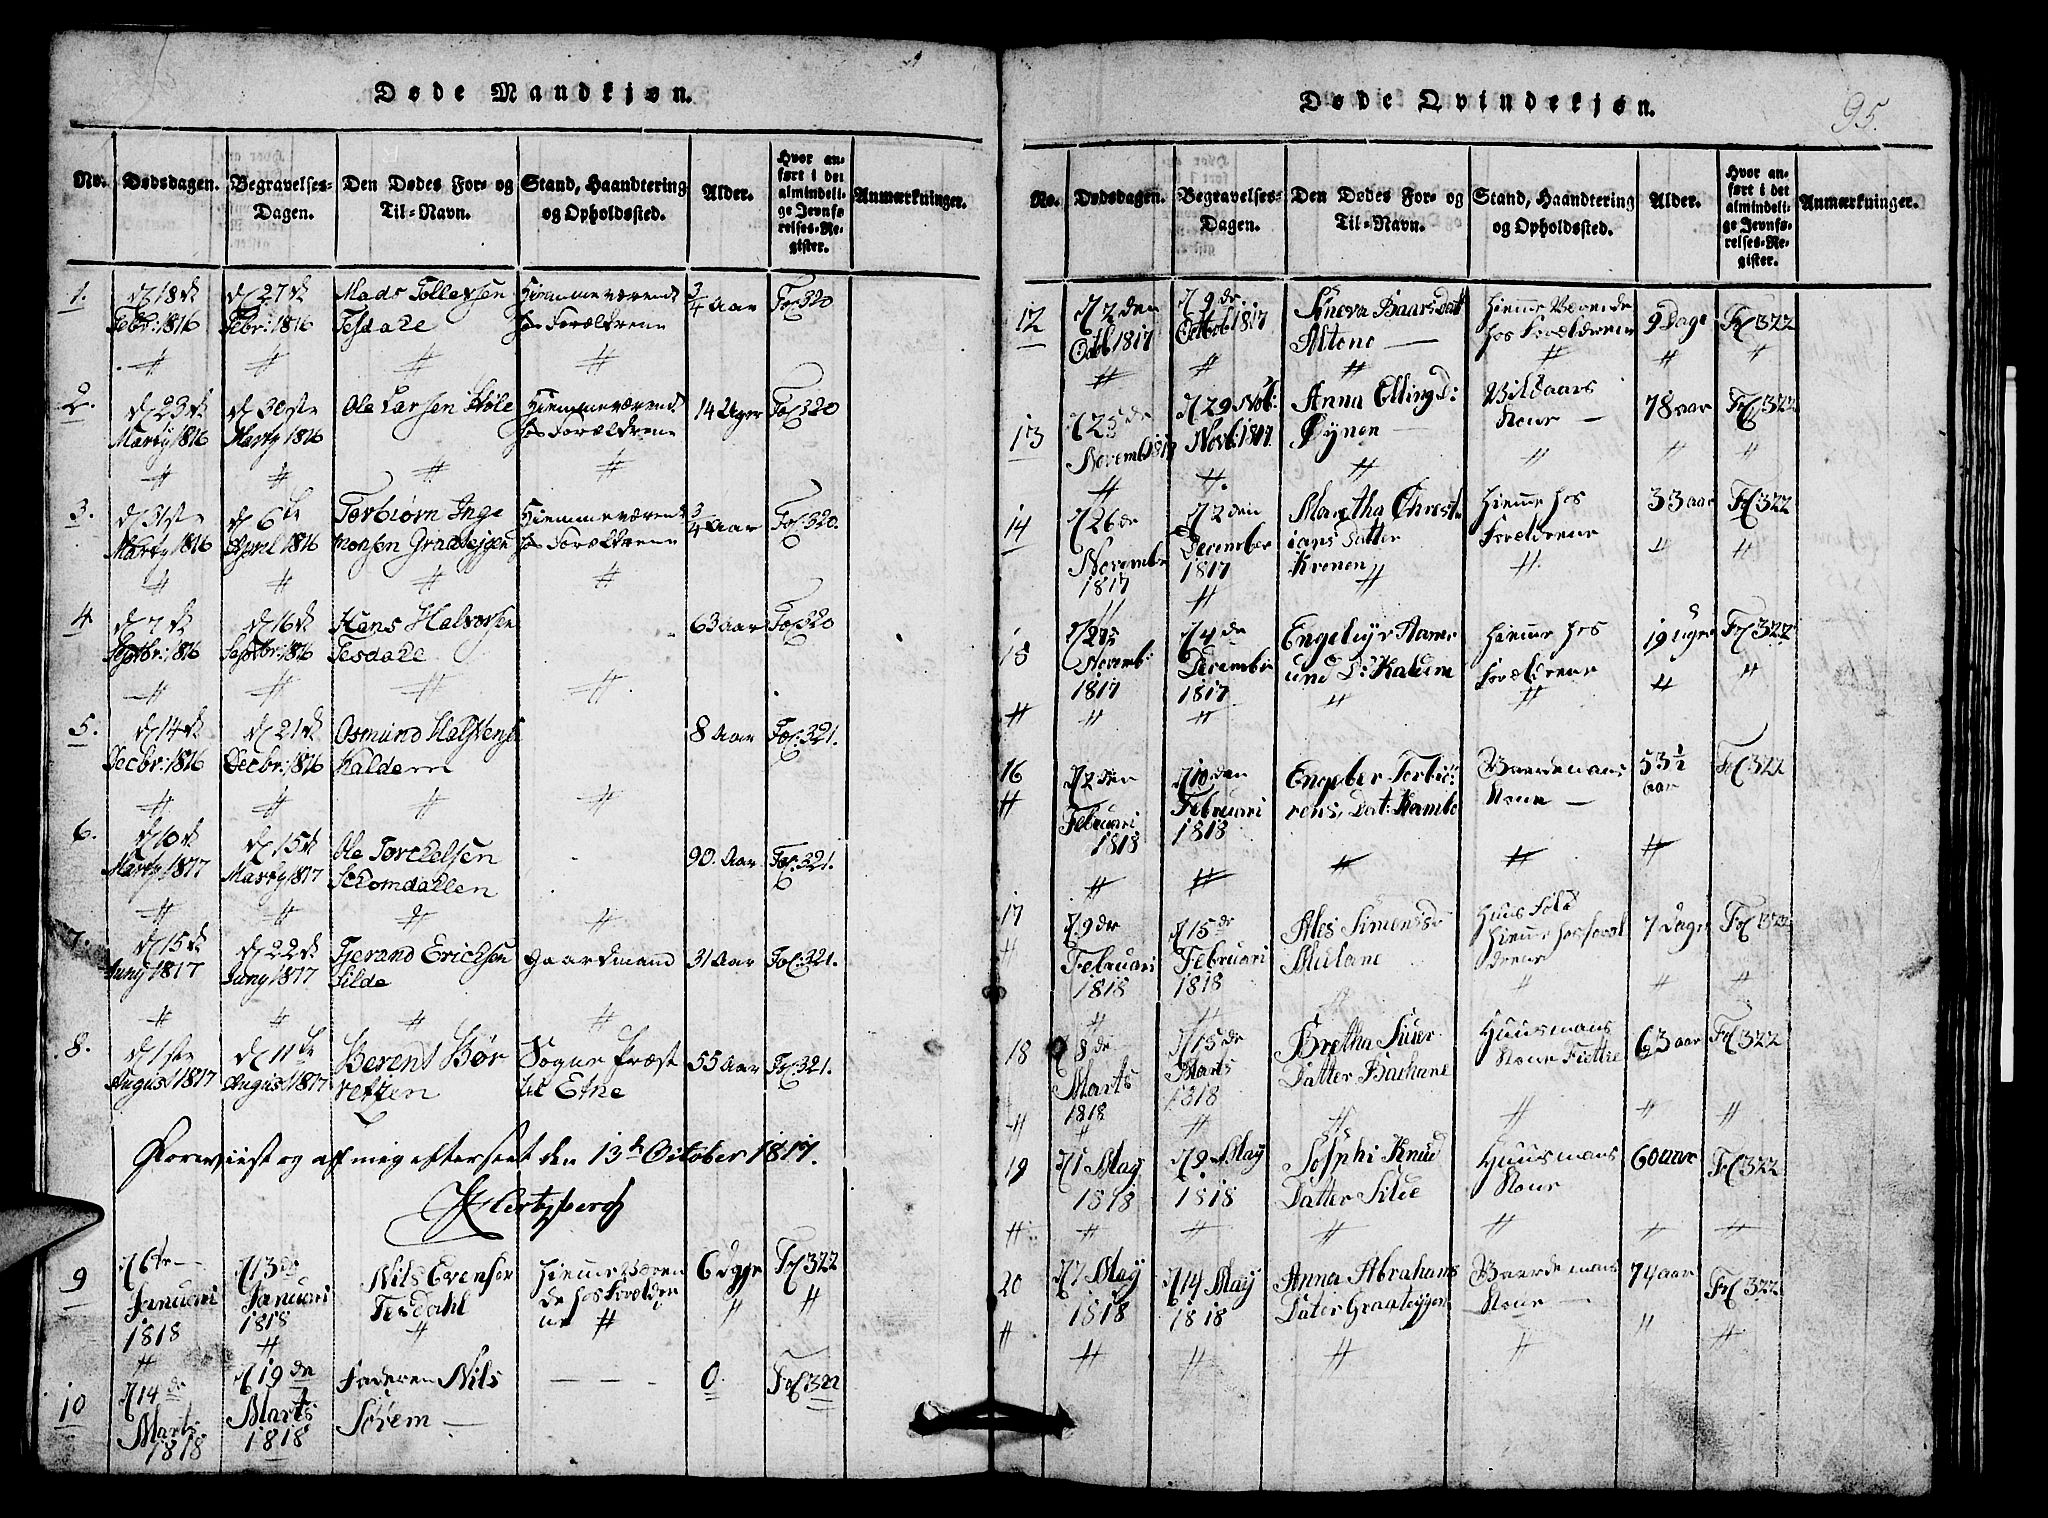 Døde Mandkjøn.
No. Dødsdagen. Begravelses-Dagen. Den Dødes For- og Til-Navn. Stand, Haandtering og Opholdssted. Alder. Hvor anført i det almindelige Jevnførelses-Register. Anmærkninger.
1. d 18de Febr: 1816 d 27de Febr: 1816 Mads Tollevsen Tesdale Hiemmeværende hos Forældrene 3/4 Aar Fol: 320
2. d 23de Marty 1816 d 30ste Marty 1816 Ole Larsen Støle Hiemmeværend. hos Forældrene 14 Uger Fol: 320
3. d 31ste Marty 1816 d 6te April 1816 Torbiørn Ingemonsen Graatejgen Hiemmeværend hos Forældrene 3/4 Aar Fol: 320.
4 d 7de Septbr: 1816 d 16de Septbr: 1816 Hans Halvorsen Tesdale 63 Aar Fol: 320
5. d 14de Decbr: 1816 d 21de Decbr: 1816 Osmund Halstens: Kaldem 8 Aar Fol: 321.
6. d 10de Marty 1817 d 15de Marty 1817 Ole Torckelsen 90. Aar Fol: 321.
7. d 15de Juny 1817 d 22de Juny 1817 Tjerand Erichsen Silde Gaardmand 31 Aar Fol: 321.
8. d 1ste August 1817 d 11te August 1817 Berent Børretzen Sogne Præst til Etne 55 Aar Fol: 321.
Foreviist og af mig efterseet den 13de October 1817.
Hertzberg
9 d 6te Januari 1818 d 13de Januari 1818 Nils Evensen Tesdahl Hieme værende hos Forældrene 6 dage Fol 322
10 d 14de Marts 1818 d 19de Marts 1818 Faderen Nils Sørem — — — 0 Fol 322
Døde Qvindekjøn.
95.
No. Dødsdagen. Begravelses-Dagen. Den Dødes For- og Til-Navn. Stand, Haandtering og Opholdssted. Alder. Hvor anført i det almindelige Jevnførelses-Register. Anmærkninger.
12 d 2den Octb 1817 d 9de Octob 1817 Sineva Baarsdat Altene — Hieme Værende hos Forældrene 9 Dage Fol 322
13 d 25de Novemb 1817 d 29 Nov: Novb 1817 Anna Elling D: — Kone — 78 aar Fol 322
14 d 26de Novemb 1817 d 2den December 1817 Martha Christians Datter Hieme hos Forældrene 33 aar Fol 322
15 d 27de Novemb: 1817 d 4de Decembr 1817 Hieme hos Forældrene 19 Uger Fol 322
16 d 2den Februari 1818 d 10den Februari 1818 Engeber Torbiørens Dat: Kone — 53 1/2 aar Fol 322
17 d 9de Februari 1818 d 15de Februari 1818 Ales Simensd: Huus Folk Hieme hos Forældrene 7 Dage Fol 322
18 d 8de Marts 1818 d 15de Marts 1818 Bretha Siver Datter Huusmans Kone 63 aar Fol 322
19 d 1 May 1818 d 9 May 1818 Sophi Knud Datter Silde Huusmans Kone 60 aar Fol 322
20 d 7 May 1818 d 14 May 1818 Anna Abrahams Dater Graateygen Kone — 74 aar Fol 322